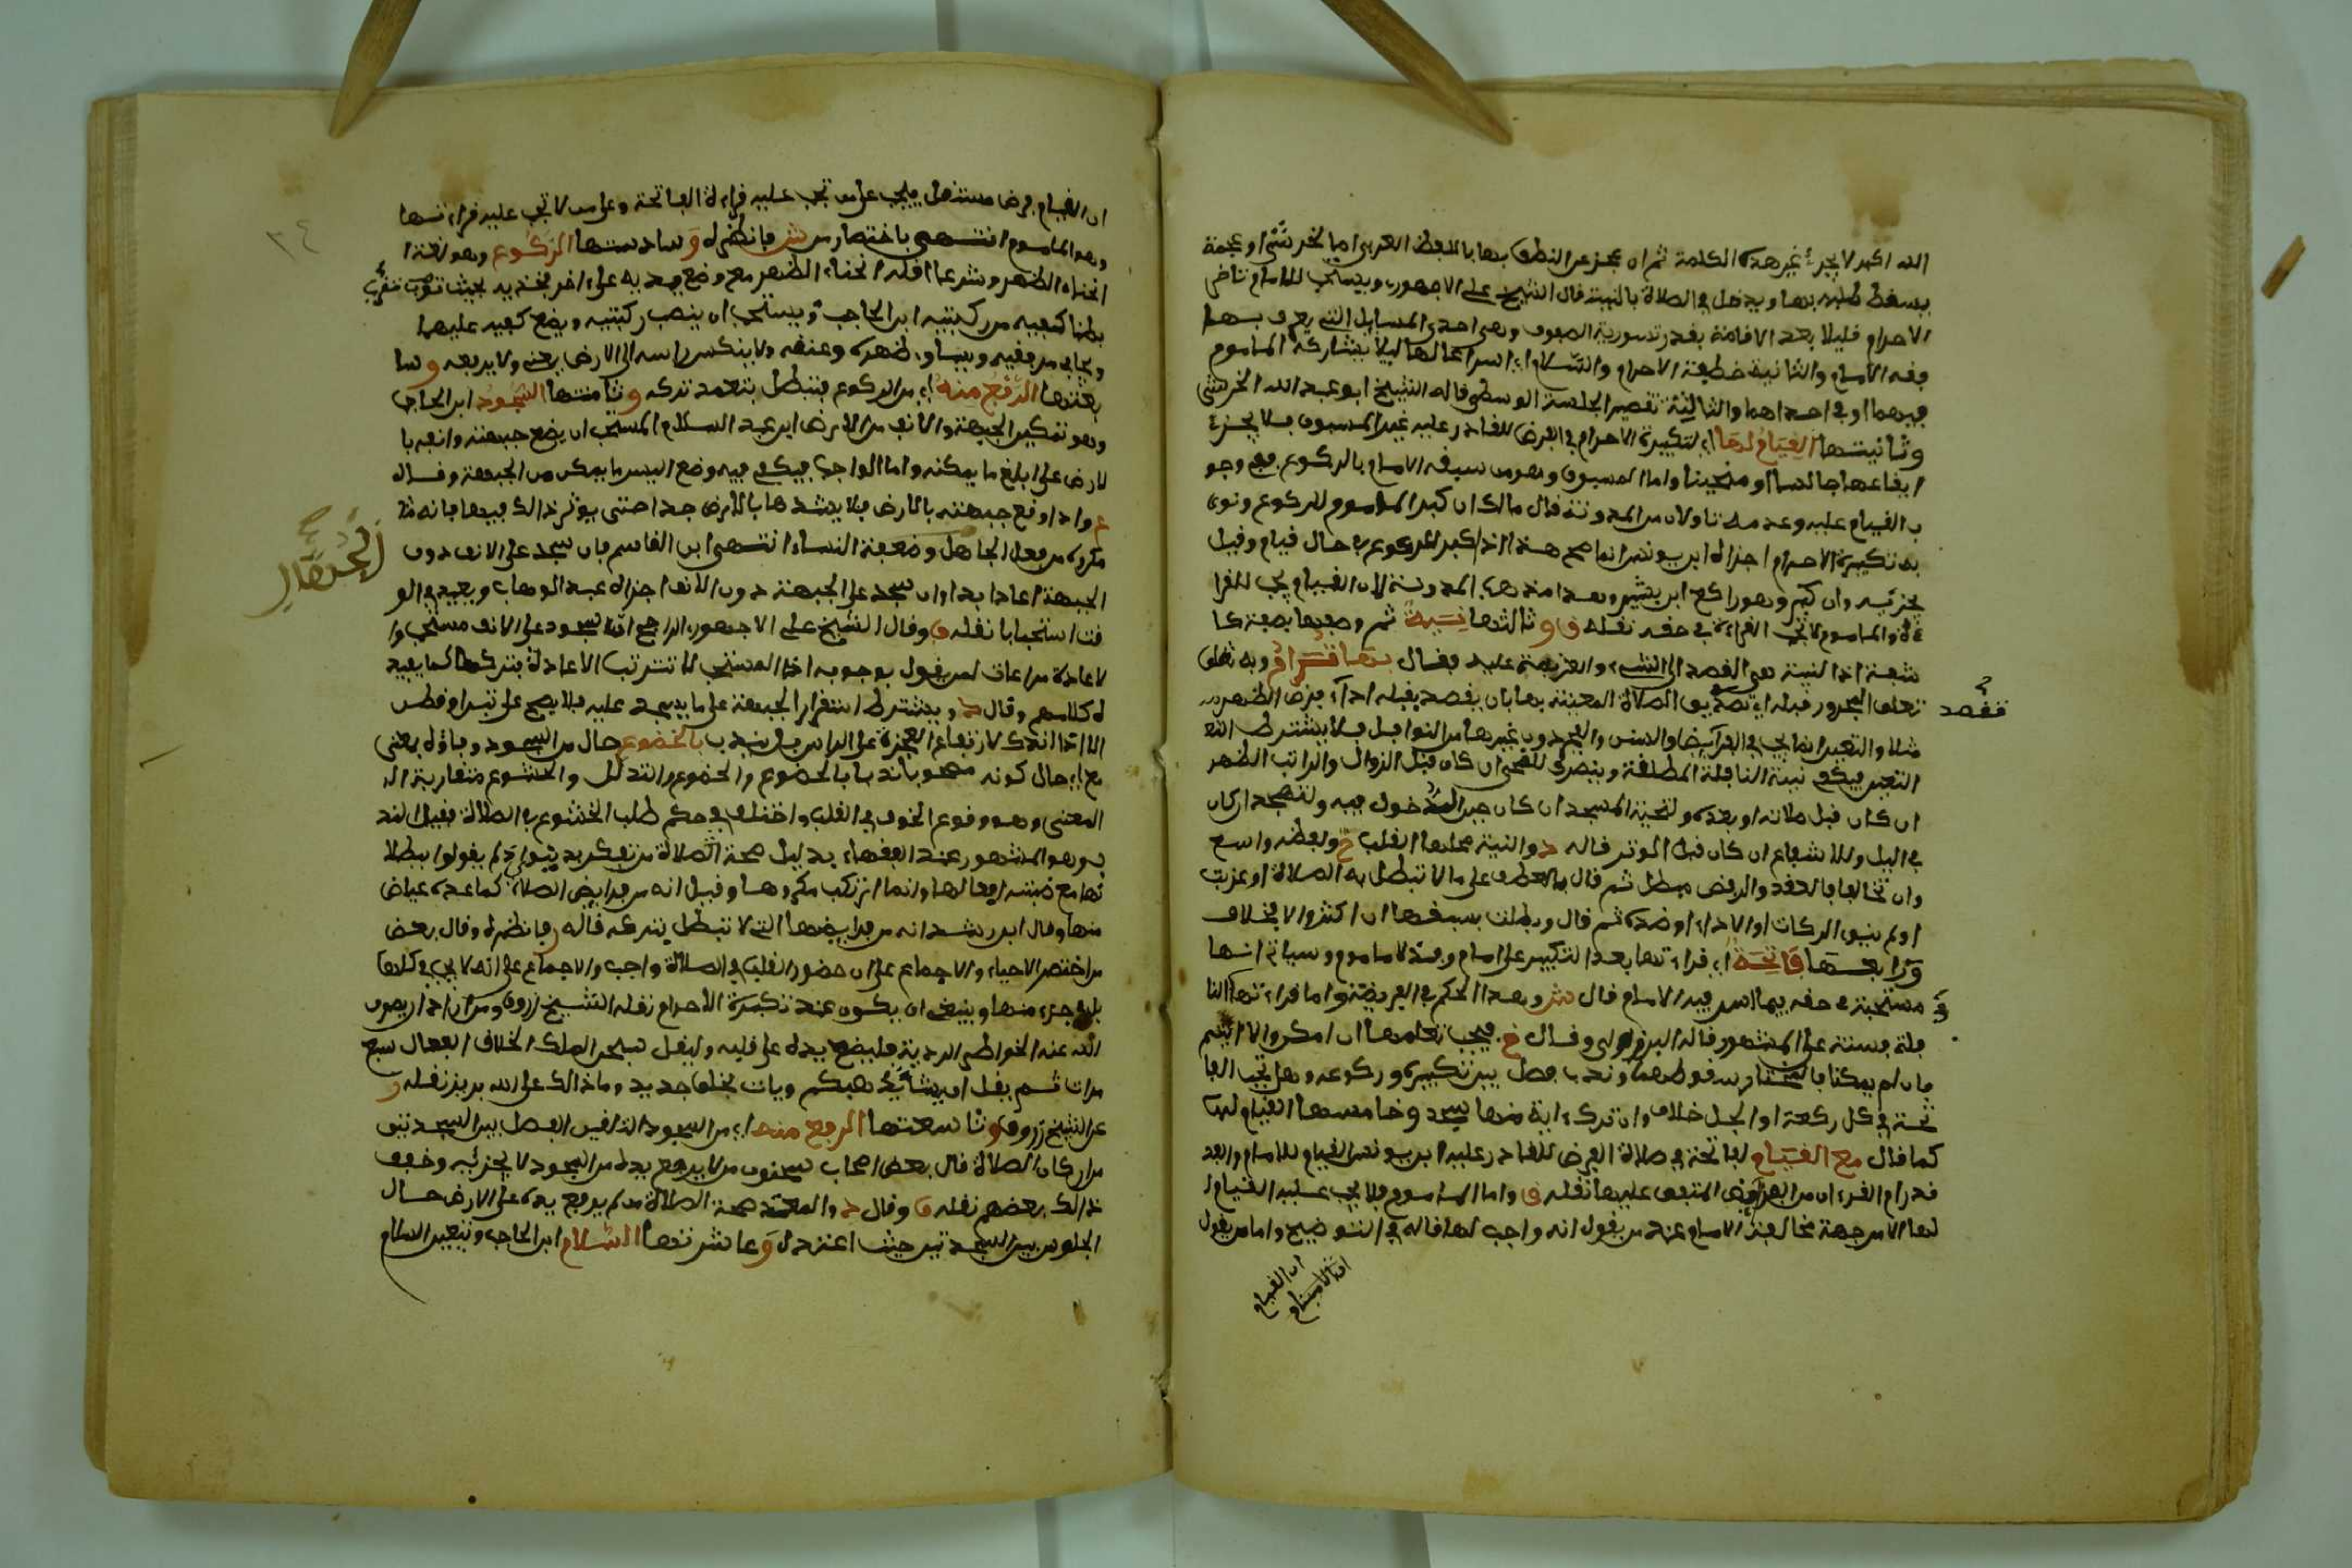 الله اكبر لا يجزئ غير هذه الكلمة ثم ان عجز عن النطق بها باللفظ العربي اما لخرس او عجمة
يسقط طلبه بها ويدخل في الصلاة بالنية قال الشيخ علي الاجهوري ويستحب للامام تاخير
الاحرام قليلا بعد الاقامة بقدر تسوية الصفوف وهي احدى المسايل التي يعرف بها
فقه الامام والثانية خطفة الاحرام والسلام اي اسراعا لهما ليلا يشاركه الماموم
فيهما او في احداهما والثالثة تقصير الجلسة الوسطى قاله الشيخ ابو عبد الله الخرشي
وثانيتها القيام لها اي لتكبيرة الاحرام في الفرض للقادر عليه غير المسبوق فلا يجزئ
ايقاعها جالسا او منحنيا واما المسبوق وهو من سبقه الامام بالركوع ففي وجو
ب القيام عليه وعدمه تاويلان من المدونة قال مالك ان كبر الماموم للركوع ونوى
به تكبيرة الاحرام اجزاه ابن يونس انما صح هذا اذا كبر للركوع في حال قيام وقيل
يجزئه وان كبر وهو راكع ابن بشير وهذا مذهب المدونة لان القيام يجب للقرا
ءة والماموم لا تجب القراءة في حقه نقله ق و ثالثتها نية ثم وصفها بصفة كا
شفة اذ النية هي القصد الى الشيء والعزيمة عليه فقال بها ترام وبه تعلق
تعلق المجرور قبله اي تقصد بها الصلاة المعينة بها بان يقصد بقلبه اداء فرض الظهر
فقصد
مثلا والتعيين انما يجب في الفرايض والسنن والفجر دون غيرها من النوافل فلا يشترط التع
التعيين فيكفي نية النافلة المطلقة وينصرف للضحى ان كان قبل الزوال والراتب الظهر
ان كان قبل صلاته او بعده ولتحية المسجد ان كان حين الدخول فيه ولتهجد ان كان
في اليل وللاشفاع ان كان قبل الوتر قاله د والنية محلها القلب خ ولفظه واسع
وان تخالفا فالعقد والرفض مبطل ثم قال بالعطف على ما لا تبطل به الصلاة او عزبت
او لم ينو الركعات او الاداء او ضده ثم قال وبطلت بسبقها ان كثر والا فخلاف
ورابعتها فاتحة اي قراءتها بعد التكبير على امام وفذ لا ماموم وسياتي انها
مستحبة في حقه فيما اسر فيه الامام قال ش وهذا الحكم في الفريضة واما قراءتها في النا
فلة فسنة على المشهور قاله البرزلي وقال خ فيجب تعلمها ان امكن والا ايتم
فان لم يمكنا فالمختار سقوطهما وندب فصل بين تكبيره وركوعه وهل تجب الفا
تحة في كل ركعة او الجل خلاف وان ترك ءاية منها سجد وخامستها القيام لها
كما قال مع القيام لفاتحة في صلاة الفرض للقادر عليه ابن يونس القيام للامام والفذ
قدر ام القرءان من الفرايض المتفق عليها نقله ق واما الماموم فلا يجب عليه القيام ل
لها الا من جهة مخالفة الامام عند من يقول انه واجب لها قاله في التوضيح واما من يقول
ان القيام
ان القيام فرض مستقل فيجب على من تجب عليه قراءة الفاتحة وعلى من لا تجب عليه قراءتها
وهو الماموم انتهى باختصار من ش فانظره و سادستها الركوع وهو لغة ا
انحناء الظهر وشرعا اقله انحناء الظهر مع وضع يديه على اخر فخذيه بحيث تقرب
بطنا كفيه من ركبتيه ابن الحاجب ويستحب ان ينصب ركبتيه ويضع كفيه عليهما
ويجافي مرفقيه ويساوي ظهره وعنقه ولا ينكس راسه الى الارض يعني ولا يرفعه وسا
بعتها الرفع منه اي من الركوع فتبطل بتعمد تركه و ثامنتها السجود ابن الحاجب
وهو تمكين الجبهة والانف من الارض ابن عبد السلام المستحب ان يضع جبهته وانفه با
لارض على ابلغ ما يمكنه واما الواجب فيكفي فيه وضع ايسر ما يمكن من الجبهة وقال
ع واذا وضع جبهته بالارض فلا يشدها بالارض جدا حتى يوثر ذلك فيها فانه
مكروه من فعل الجاهل وضعفة النساء انتهى ابن القاسم فان سجد على الانف دون
الجبهة اعاد ابدا وان سجد على الجبهة دون الانف اجزاه عبد الوهاب ويعيد في الو
قت استحبابا نقله ق وقال الشيخ علي الاجهوري الراجح ان السجود على الانف مستحب وا
لاعادة مراعاة لمن يقول بوجوبه اذ المستحب لا تترتب الاعادة بتركه كما يفيد
ه كلامهم وقال د ويشترط استقرار الجبهة على ما يسجد عليه فلا يصح على تبن او قطن
الا اذا اندك لا ارتفاع العجزة على الراس بل يندب بالخضوع حال من السجود وباؤه بمعنى
مع اي حال كونه مصحوبا ندبا بالخضوع والخضوع والتذلل والخشوع متقاربة ال
المعنى وهو وقوع الخوف في القلب واختلف في حكم طلب الخشوع في الصلاة فقيل الند
ب وهو المشهور عند الفقهاء بدليل صحة الصلاة من تفكر بدنيوي ولم يقولوا ببطلا
نها مع ضبطه افعالها وانما ارتكب مكروها وقيل انه من فرايض الصلاة كما عده عياض
منها وقال ابن رشد انه من فرايضها التي لا تبطل بتركه قاله ر فانظره وقال بعض
من اختصر الاحياء والاجماع على ان حضور القلب في الصلاة واجب والاجماع على انه لا يجب في كلها
بل في جزء منها وينبغي ان يكون عند تكبيرة الاحرام نقله الشيخ زروق ومن اراد ان يصرف
الله عنه الخواطر الردية فليضع يده على قلبه وليقل سبحن الملك الخلاق الفعال سبع
مرات ثم يقل ان يشأ يذهبكم ويات بخلق جديد وما ذلك على الله بعزيز نقله ر
عن الشيخ زروق و تاسعتها الرفع منه اي من السجود التي هي الفصل بين السجدتين
من اركان الصلاة قال بعض اصحاب سحنون من لا يرفع يديه من السجود لا يجزئه وخفف
ذلك بعضهم نقله ق وقال د والمعتمد صحة الصلاة من لم يرفع يديه على الارض حال
الجلوس بين السجدتين حيث اعتدل و عاشرتها السلام ابن الحاجب ويتعين السلام